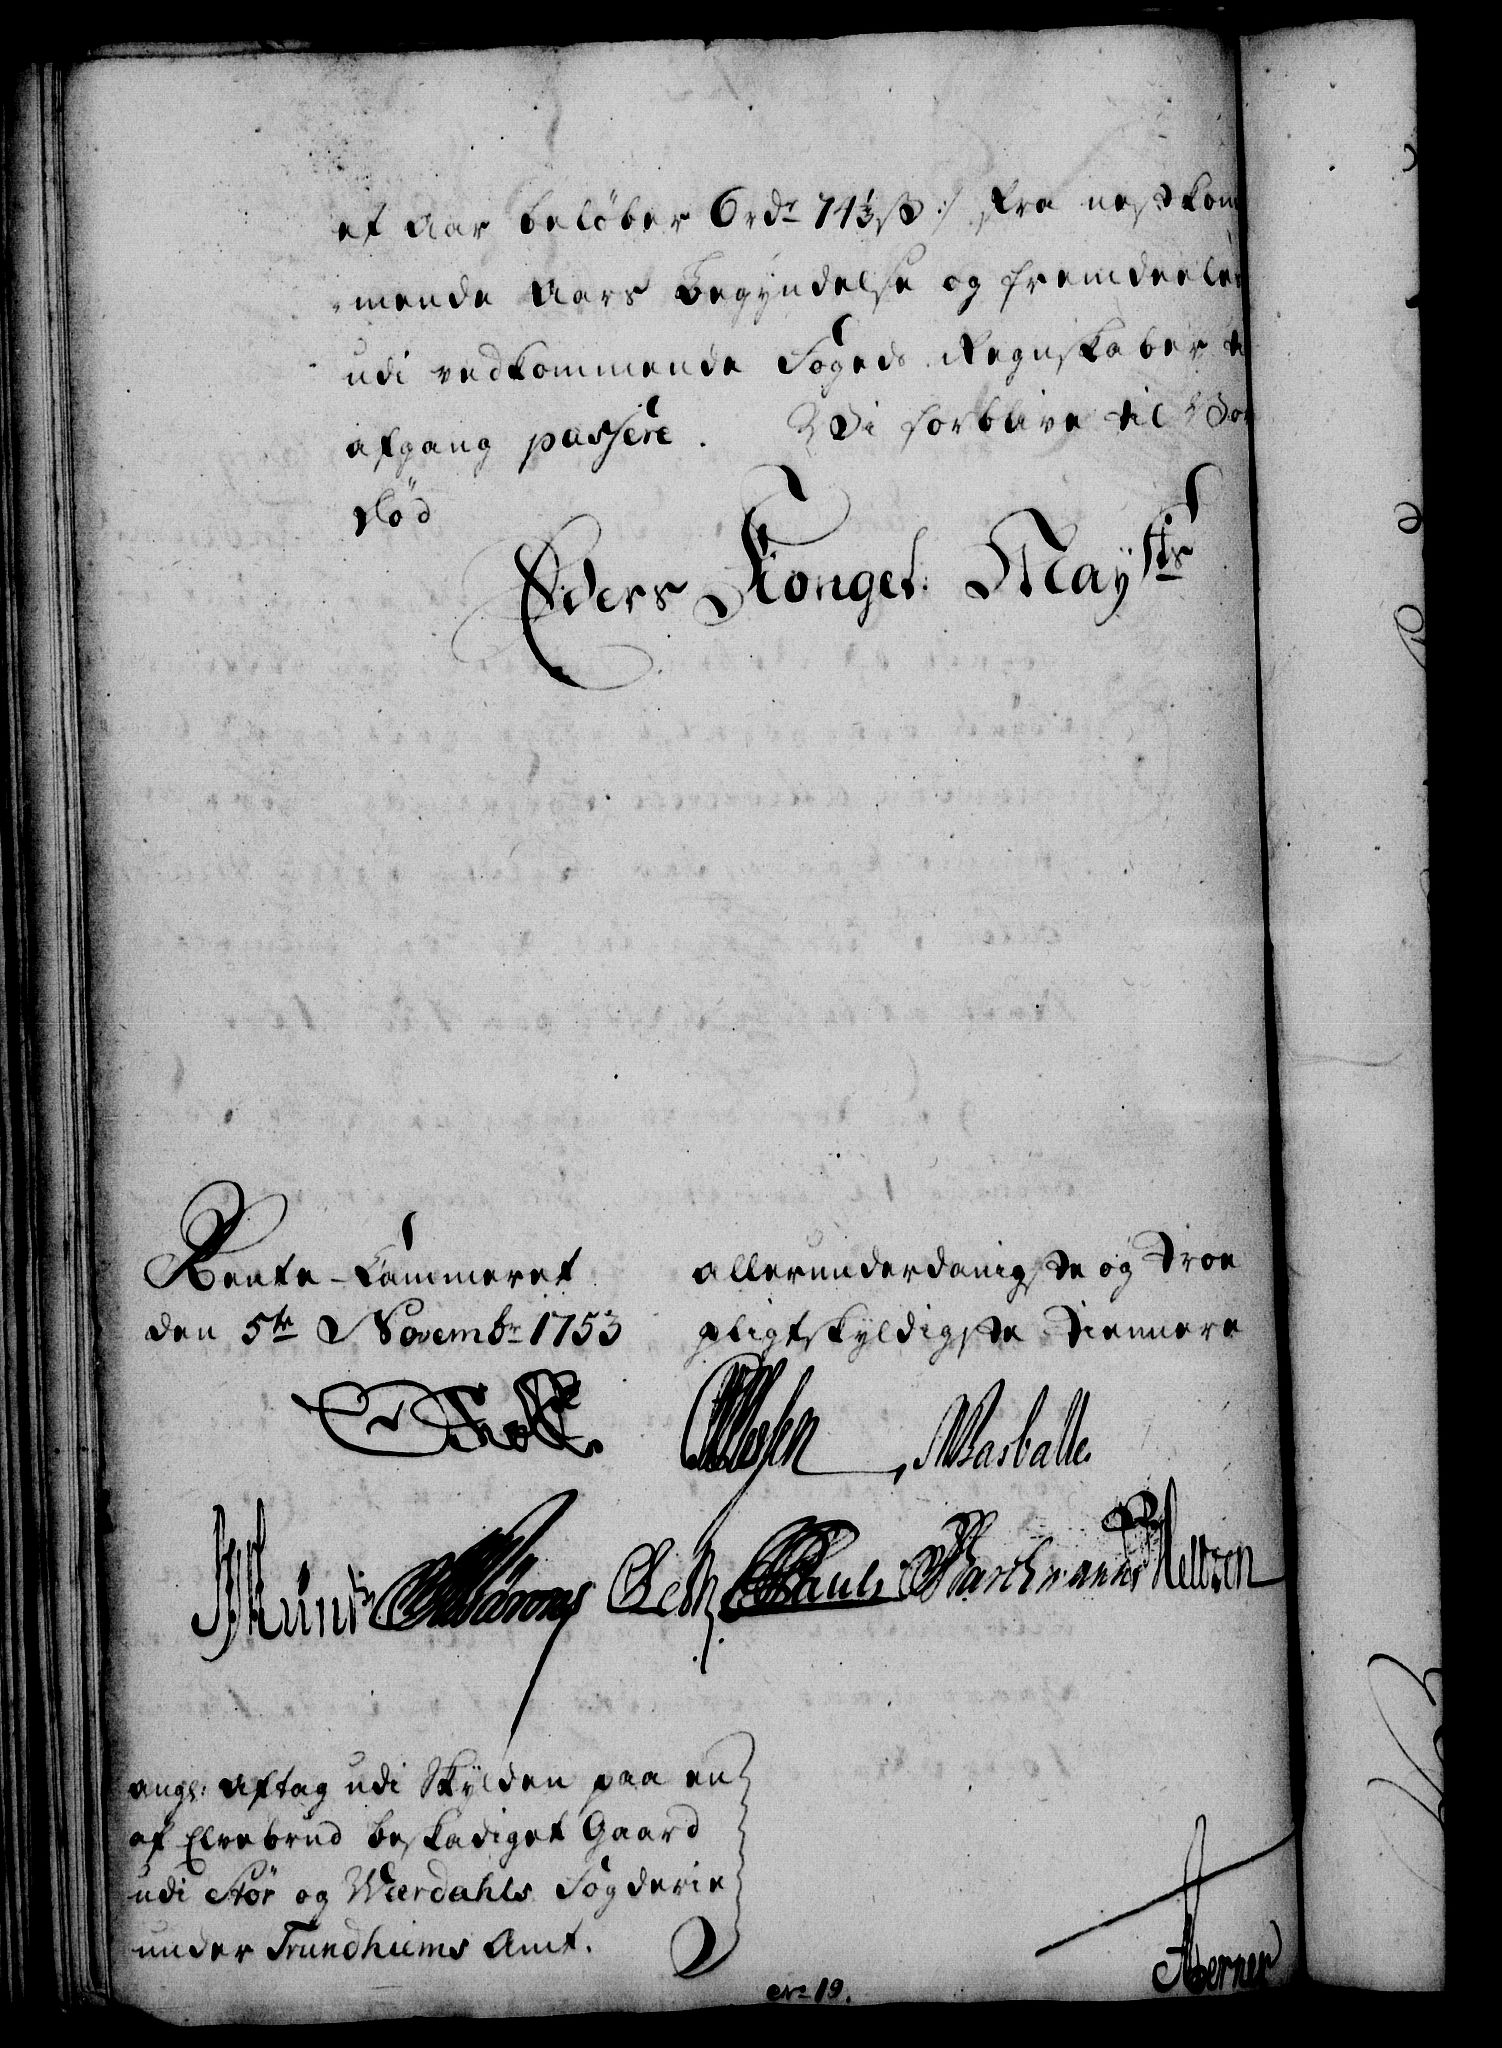 et Aar beløber 6 rdr 74½ s :/ fra nestkom
mende Aars Begyndelse og fremdeeles
udi vedkommende Fogeds Regnskaber til
afgang passere. Vi forblive til Vor
død
Eders Kongel: Mayts
Rente-Cammeret
den 5te Novembr 1753
allerunderdanigste og troe
pligtskyldigste tiennere
Holst
Wasballe
Pauli
angl: Aftag udi Skylden paa en
af Elvebrud beskadiget Gaard
udi Stør og Wærdahls Fogderie
under Trundhiems Amt.
No 19.
Berner